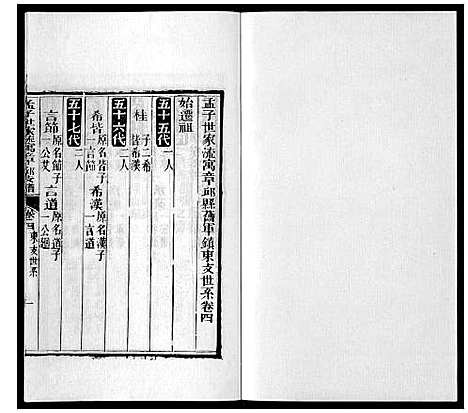 孟子世家流寓章邱縣舊軍鎮東支世系卷四
始遷祖
五十五代 一人
桂 子二希皆希漢
五十六代 二人
希皆 原名皆子一言節 希漢 原名漢子一言道
五十七代 二人
言節 原名節子一公 言道 原名道子一公
孟子世家流寓章邱支譜 卷四 東支世系 一